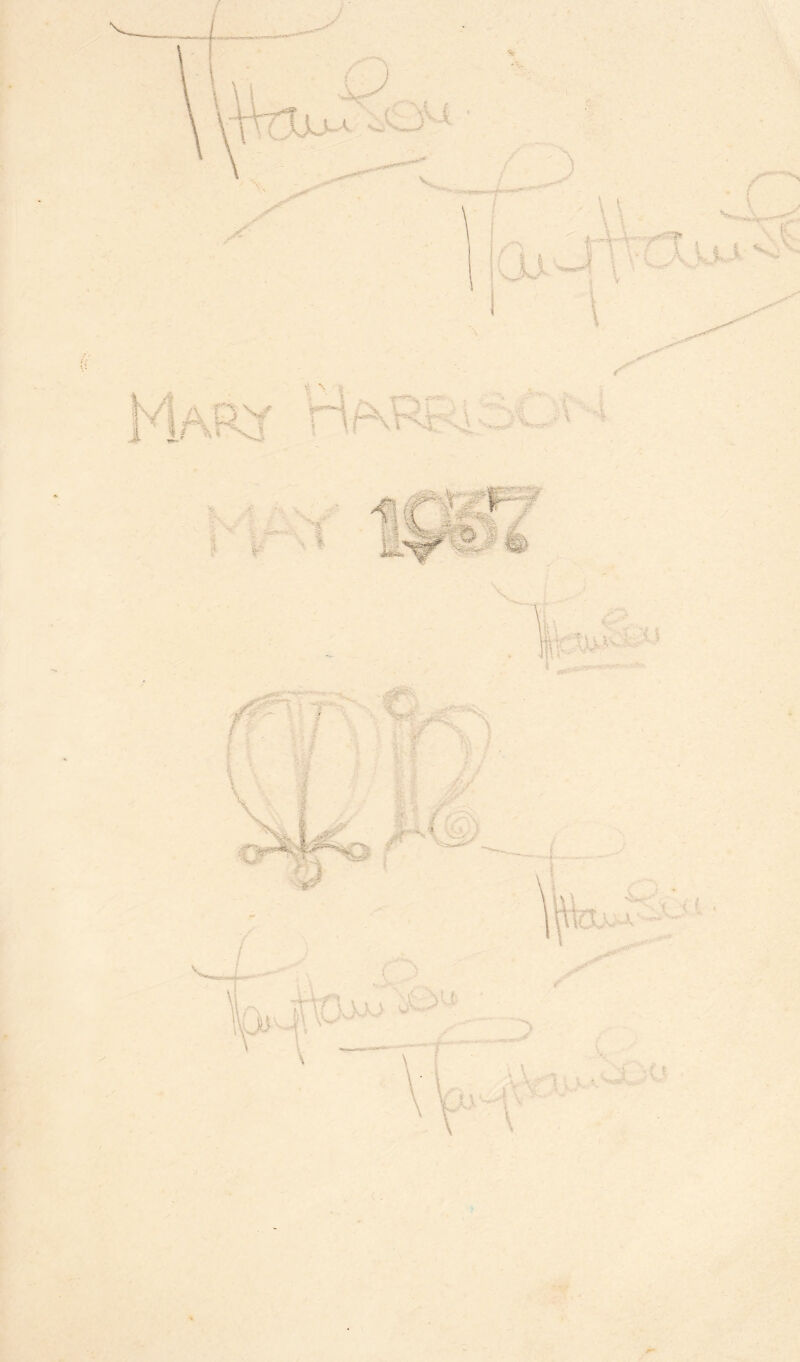 MHarrison.
MaryHarriso
MARY HARRISON
MAY 1937
MHarrison
MH
MHarrison.
MaryHarrison
MaryHarrison